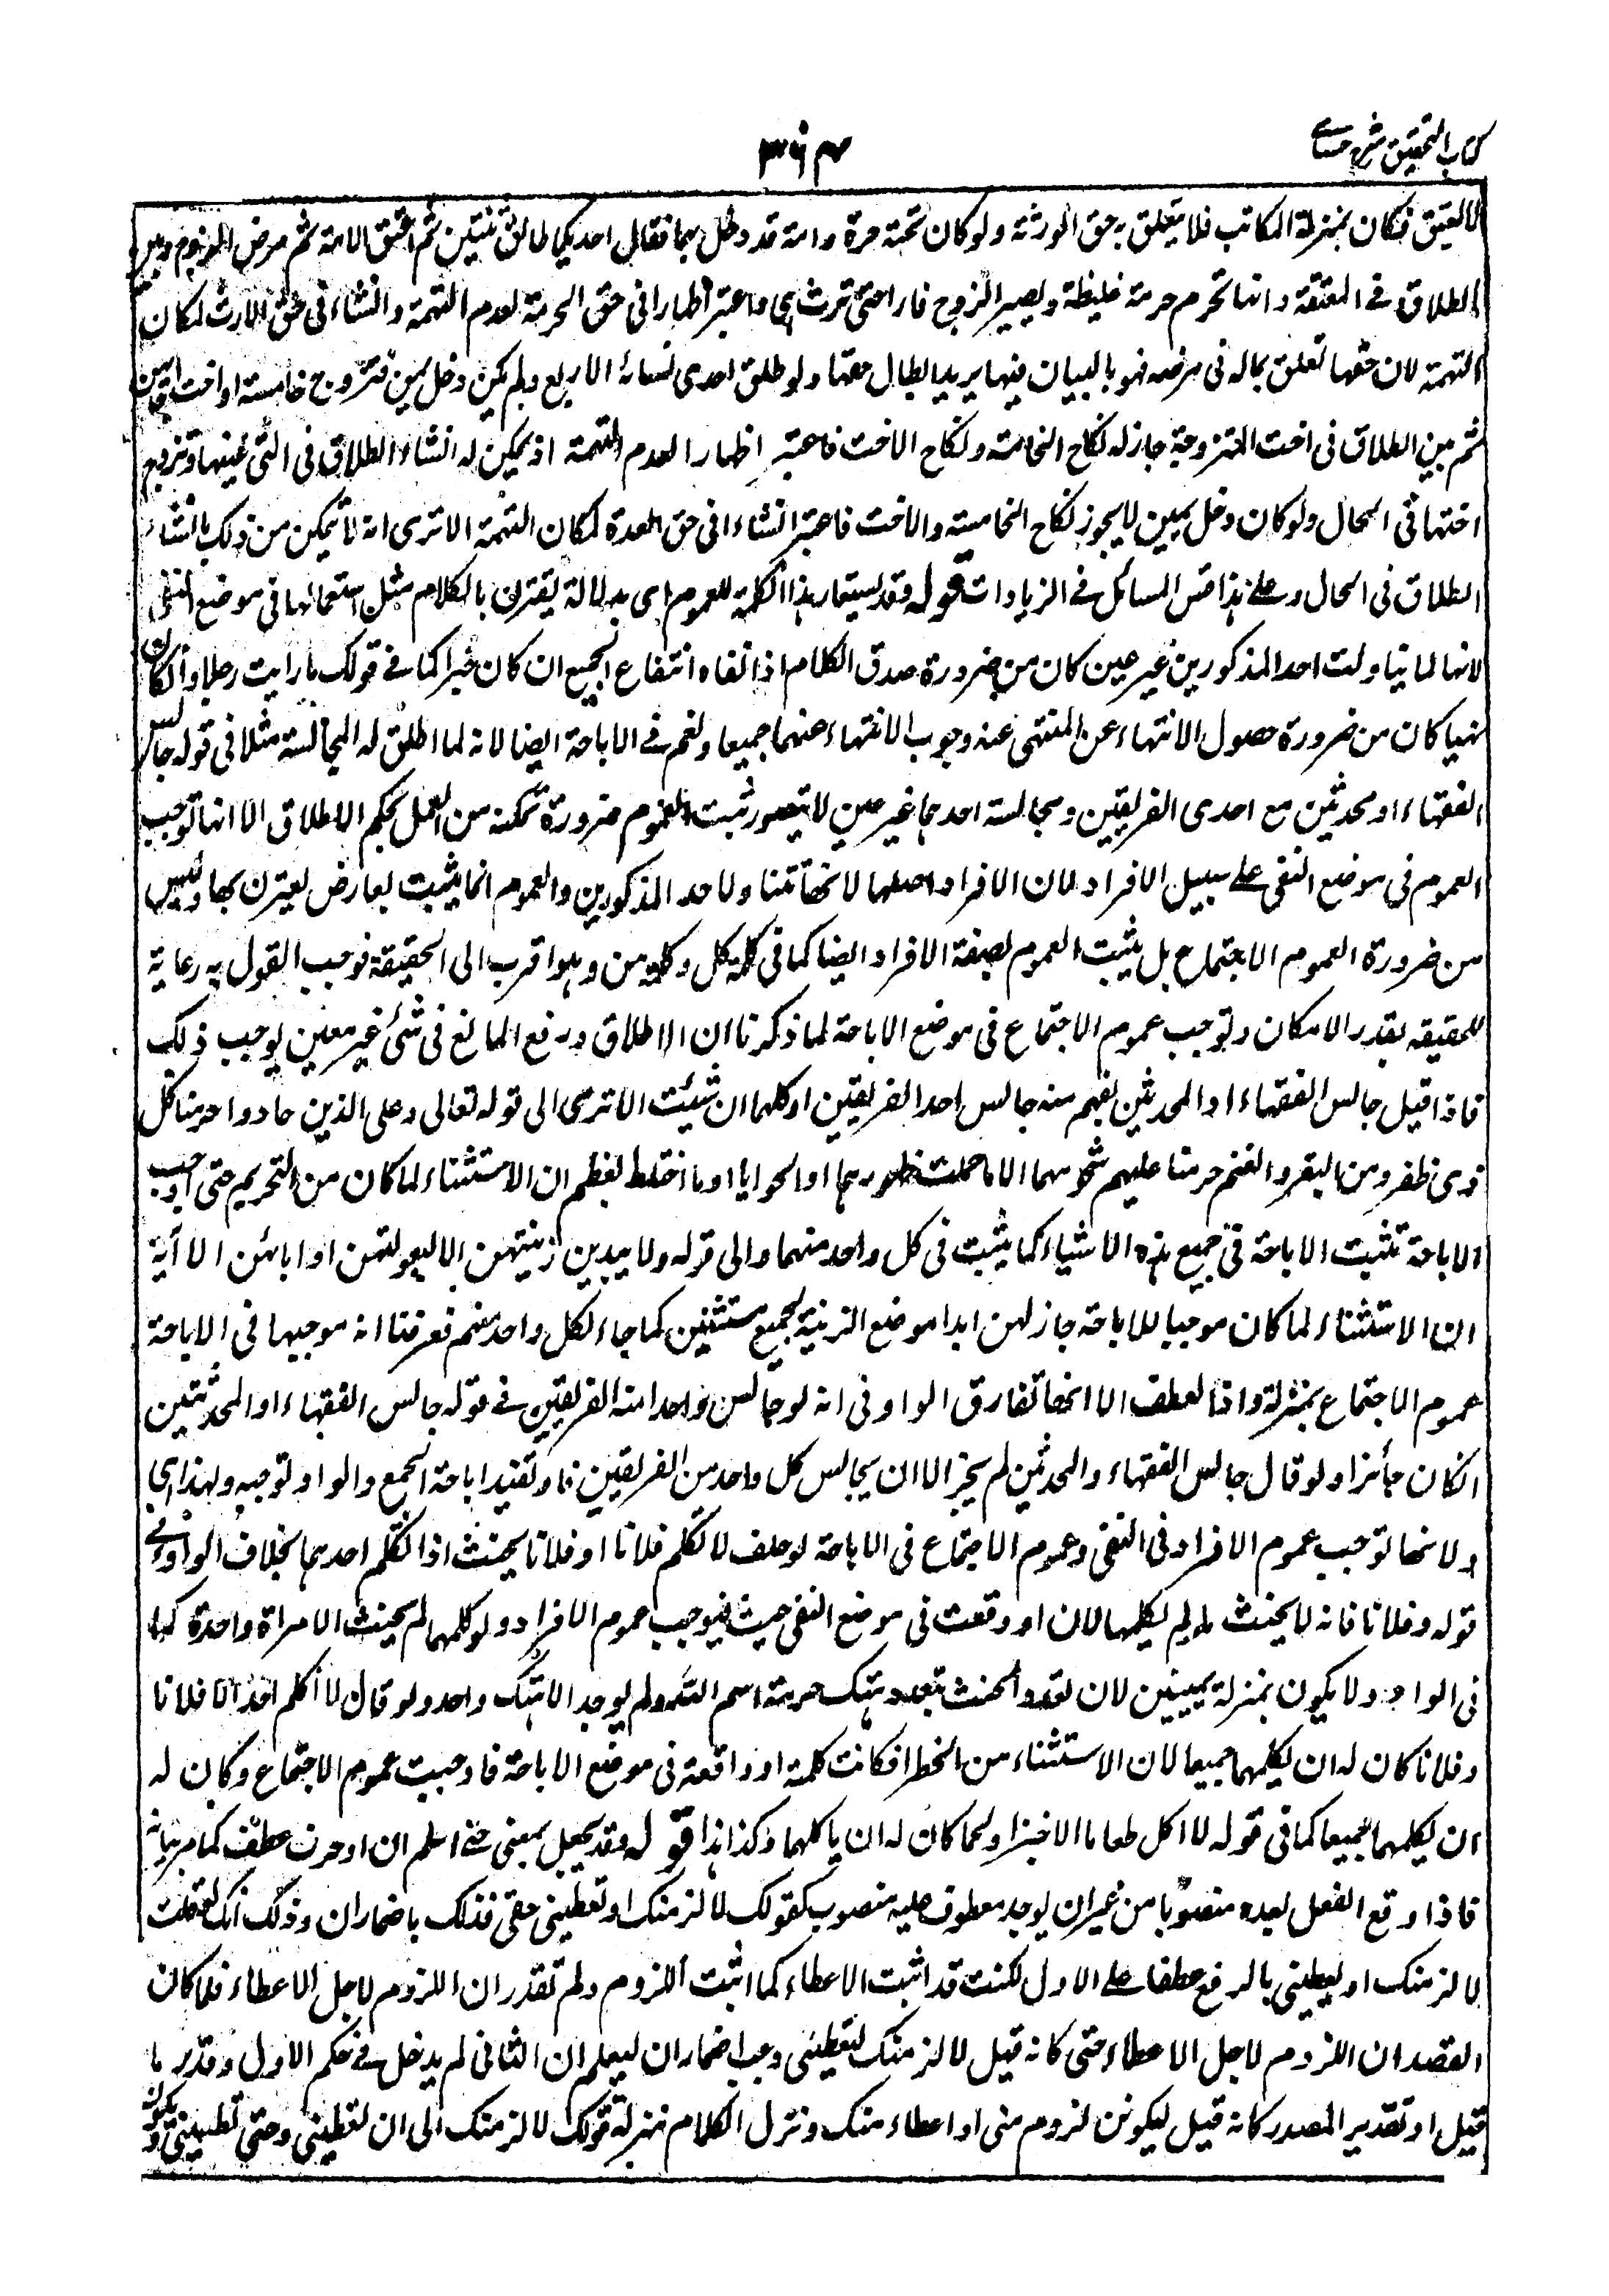 كتاب التحقيق شرح حسامے
۳۶۴
لا العتيق فكان بمنزلة المكاتب فلا يتعلق به حق الورثة ولو كان تحته حرة وامة قد دخل بهما فقال احدیكما طالق ثنتين ثم اعتق الامة ثم مرض الزوج وبين
الطلاق فے المعتقة وانها تحرم حرمة غليظة ويصير الزوج فارا حتى ترث هی واعتبر اظهارا فى حق الحرمة لعدم التهمة وانشاء فى حق الارث لمكان
التهمة لان حقها تعلق بماله فى مرضه فهو بالبيان فيها يريد ابطال حقها ولو طلق احدى نسائه الاربع ولم يكن دخل بهن فتزوج خامسة او اخت احديهن
ثم بين الطلاق فى اخت المتزوجة جاز له نكاح الخامسة ونكاح الاخت فاعتبر اظهارا لعدم التهمة اذ يمكن له انشاء الطلاق فى التى عينها وتزوج
اختها فى الحال ولو كان دخل بهن لا يجوز نكاح الخامسة والاخت فاعتبر انشاء فى حق العدة لمكان التهمة الا ترى انه لا يتمكن من ذلك بانشاء
الطلاق فى الحال وعلے هذا قس المسائل فے الزيادات قوله وقد يستعار هذا الكلمة للعموم اى بدلالة يقترن بالكلام مثل استعمالها فى موضع النفى
لانها لما تناولت احد المذكورين غير عين كان من ضرورة صدق الكلام اذا نفاه انتفاع الجميع ان كان خبرا كما فے قولك ما رايت رجلا وان كان
نهيا كان من ضرورة حصول الانتهاء عن المنتهى عنه وجوب الانتهاء عنهما جميعا ونعم فے الاباحة ايضا لانه لما اطلق له المجالسة مثلا فى قوله جالس
الفقهاء او محدثين مع احدى الفريقين ومجالسة احدهما غير عين لا يتصور ثبت العموم ضرورة تمكنه من العمل بحكم الاطلاق الا انها توجب
العموم فى موضع النفى علے سبيل الافراد لان الافراد اصلها لانها تتناول احد المذكورين والعموم انما يثبت لعارض يقترن بها وليس
من ضرورة العموم الاجتماع بل يثبت العموم بصفة الافراد ايضا كما فى كلمة كل وكلمة من وهو اقرب الى الحقيقة فوجب القول به رعاية
للحقيقة بقدر الامكان وتوجب عموم الاجتماع فى موضع الاباحة لما ذكرنا ان الاطلاق ورفع المانع فى شئ غير معين يوجب ذلك
فاذا قيل جالس الفقهاء او المحدثين يفهم منه جالس احد الفريقين او كلهما ان شئت الا ترى الى قوله تعالى وعلى الذين هادوا حرمنا كل
ذى ظفر ومن البقر والغنم حرمنا عليهم شحومهما الا ما حملت ظهورهما او الحوايا او ما اختلط بعظم ان الاستثناء لما كان من التحريم حتى اوجب
الاباحة تثبت الاباحة فى جميع هذه الاشياء كما يثبت فى كل واحد منهما والى قوله ولا يبدين زينتهن الا لبعولتهن او ابائهن الآية
ان الاستثناء لما كان موجبا للاباحة جاز لهن ابدا موضع الزينة لجميع مستثنين كما جاء لكل واحد منهم فعرفنا انه موجبها فى الاباحة
عموم الاجتماع بمنزلة واو العطف الا انها تفارق الواو فى انه لو جالس واحدا من الفريقين فے قوله جالس الفقهاء او المحدثين
لكان جائزا ولو قال جالس الفقهاء والمحدثين لم يجز الا ان يجالس كل واحد من الفريقين فاو تفيد اباحة الجمع والواو توجبه ولهذا اى
ولانها توجب عموم الافراد فى النفى وعموم الاجتماع فى الاباحة لو حلف لا تكلم فلانا او فلانا يحنث اذا تكلم احدهما بخلاف الواو فے
قوله وفلانا فانه لا يحنث ما لم يكلمهما لان او وقعت فى موضع النفى حيث فيوجب عموم الافراد ولو كلمهما لم يحنث الا مراة واحدة كما
فى الواو ولا يكون بمنزلة يمينين لان تعدد الحنث بتعدد هتك حرمة اسم الله ولم يوجد الا هتك واحد ولو قال لا اكلم احدا الا فلانا
وفلانا كان له ان يكلمهما جميعا لان الاستثناء من الحظر فكانت كلمة او واقعة فى موضع الاباحة فاوجبت عموم الاجتماع وكان له
ان يكلمهما جميعا كما فى قوله لا اكل طعاما الا خبزا ولحما كان له ان ياكلهما وكذا هذا قوله وقد يجعل بمعنى حتے اعلم ان او حرف عطف كما مر بيانه
فاذا وقع الفعل بعده منصوبا من غير ان يوجد معطوف عليه منصوب كقولك لا لزمنك او تعطينى حقى فذلك باضمار ان وذلك انك لو قلت
لا لزمنك او يعطينى بالرفع عطفا علے الاول لكنت قد اثبت الاعطاء كما اثبت اللزوم ولم تقدر ان اللزوم لاجل الاعطاء فلما كان
القصد ان اللزوم لاجل الاعطاء حتى كانه قيل لا لزمنك لتعطينى وجب اضمار ان ليعلم ان الثانى لم يدخل فے حكم الاول وقدر ما
قبل او تقدير المصدر كانه قيل ليكونن لزوم منى او اعطاء منك ونزل الكلام منزلة قولك لا لزمنك الى ان تعطينى وحتى تعطينى